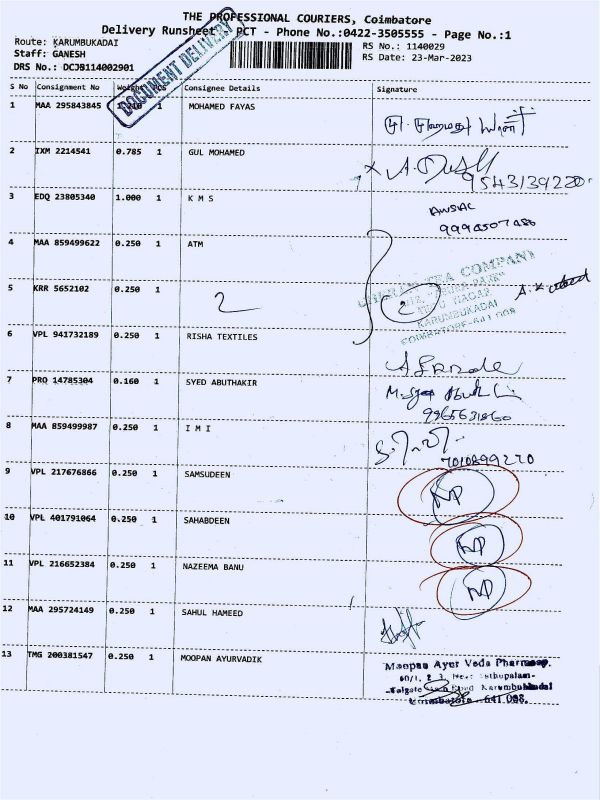 THE PROFESSIONAL COURIERS, Coimbatore
Delivery Runsheet PCT - Phone No.:0422-3505555 - Page No.:1
Route: KARUMBUKADAI
Staff: GANESH
DRS No.: DCJB114002901
RS No.: 1140029
RS Date: 23-Mar-2023
DOCUMENT DELIVERY
S No Consignment No Weight PCS Consignee Details Signature
1 MAA 295843845 1 MOHAMED FAYAS
2 IXM 2214541 0.785 1 GUL MOHAMED
9543139220
3 EDQ 23805340 1.000 1 K M S
4 MAA 859499622 0.250 1 ATM
TEA COMPANY
5 KRR 5652102 0.250 1
2 2
KARUMBUKADAI
6 VPL 941732189 0.250 1 RISHA TEXTILES
7 PRQ 14785304 0.160 1 SYED ABUTHAKIR
8 MAA 859499987 0.250 1 I M I
7010899270
9 VPL 217676866 0.250 1 SAMSUDEEN
NP
10 VPL 401791064 0.250 1 SAHABDEEN
NP
11 VPL 216652384 0.250 1 NAZEEMA BANU
NP
12 MAA 295724149 0.250 1 SAHUL HAMEED
13 TMG 200381547 0.250 1 MOOPAN AYURVADIK
Moopan Ayur Veda Pharmacy.
641 008.